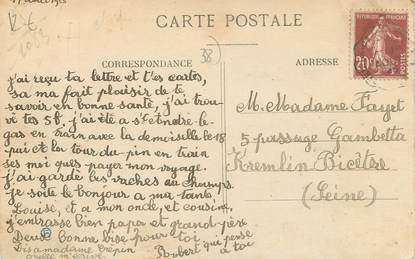 CARTE POSTALE
38
CORRESPONDANCE
ADRESSE
REPUBLIQUE FRANÇAISE
20c
POSTES
j'ai reçu ta lettre et tes cartes,
sa ma fait plaisir de te
savoir en bonne santé, j'ai trou
vé tes 5f, j'ai été a
en train avec la demoiselle le 18
puis la tour du pin en train
ses moi payer mon voyage.
j'ai gardé les vaches au champs
je soite le bonjour a ma tante
Louise, et a mon oncle, et cousin,
j'embrasse bien papa et grand-père
Deux bonne bise pour toi
Robert qui pense
a toi
Dis a madame Crépin
M. Madame Fayet
5 passage Gambetta
Kremlin Bicêtre
(Seine)